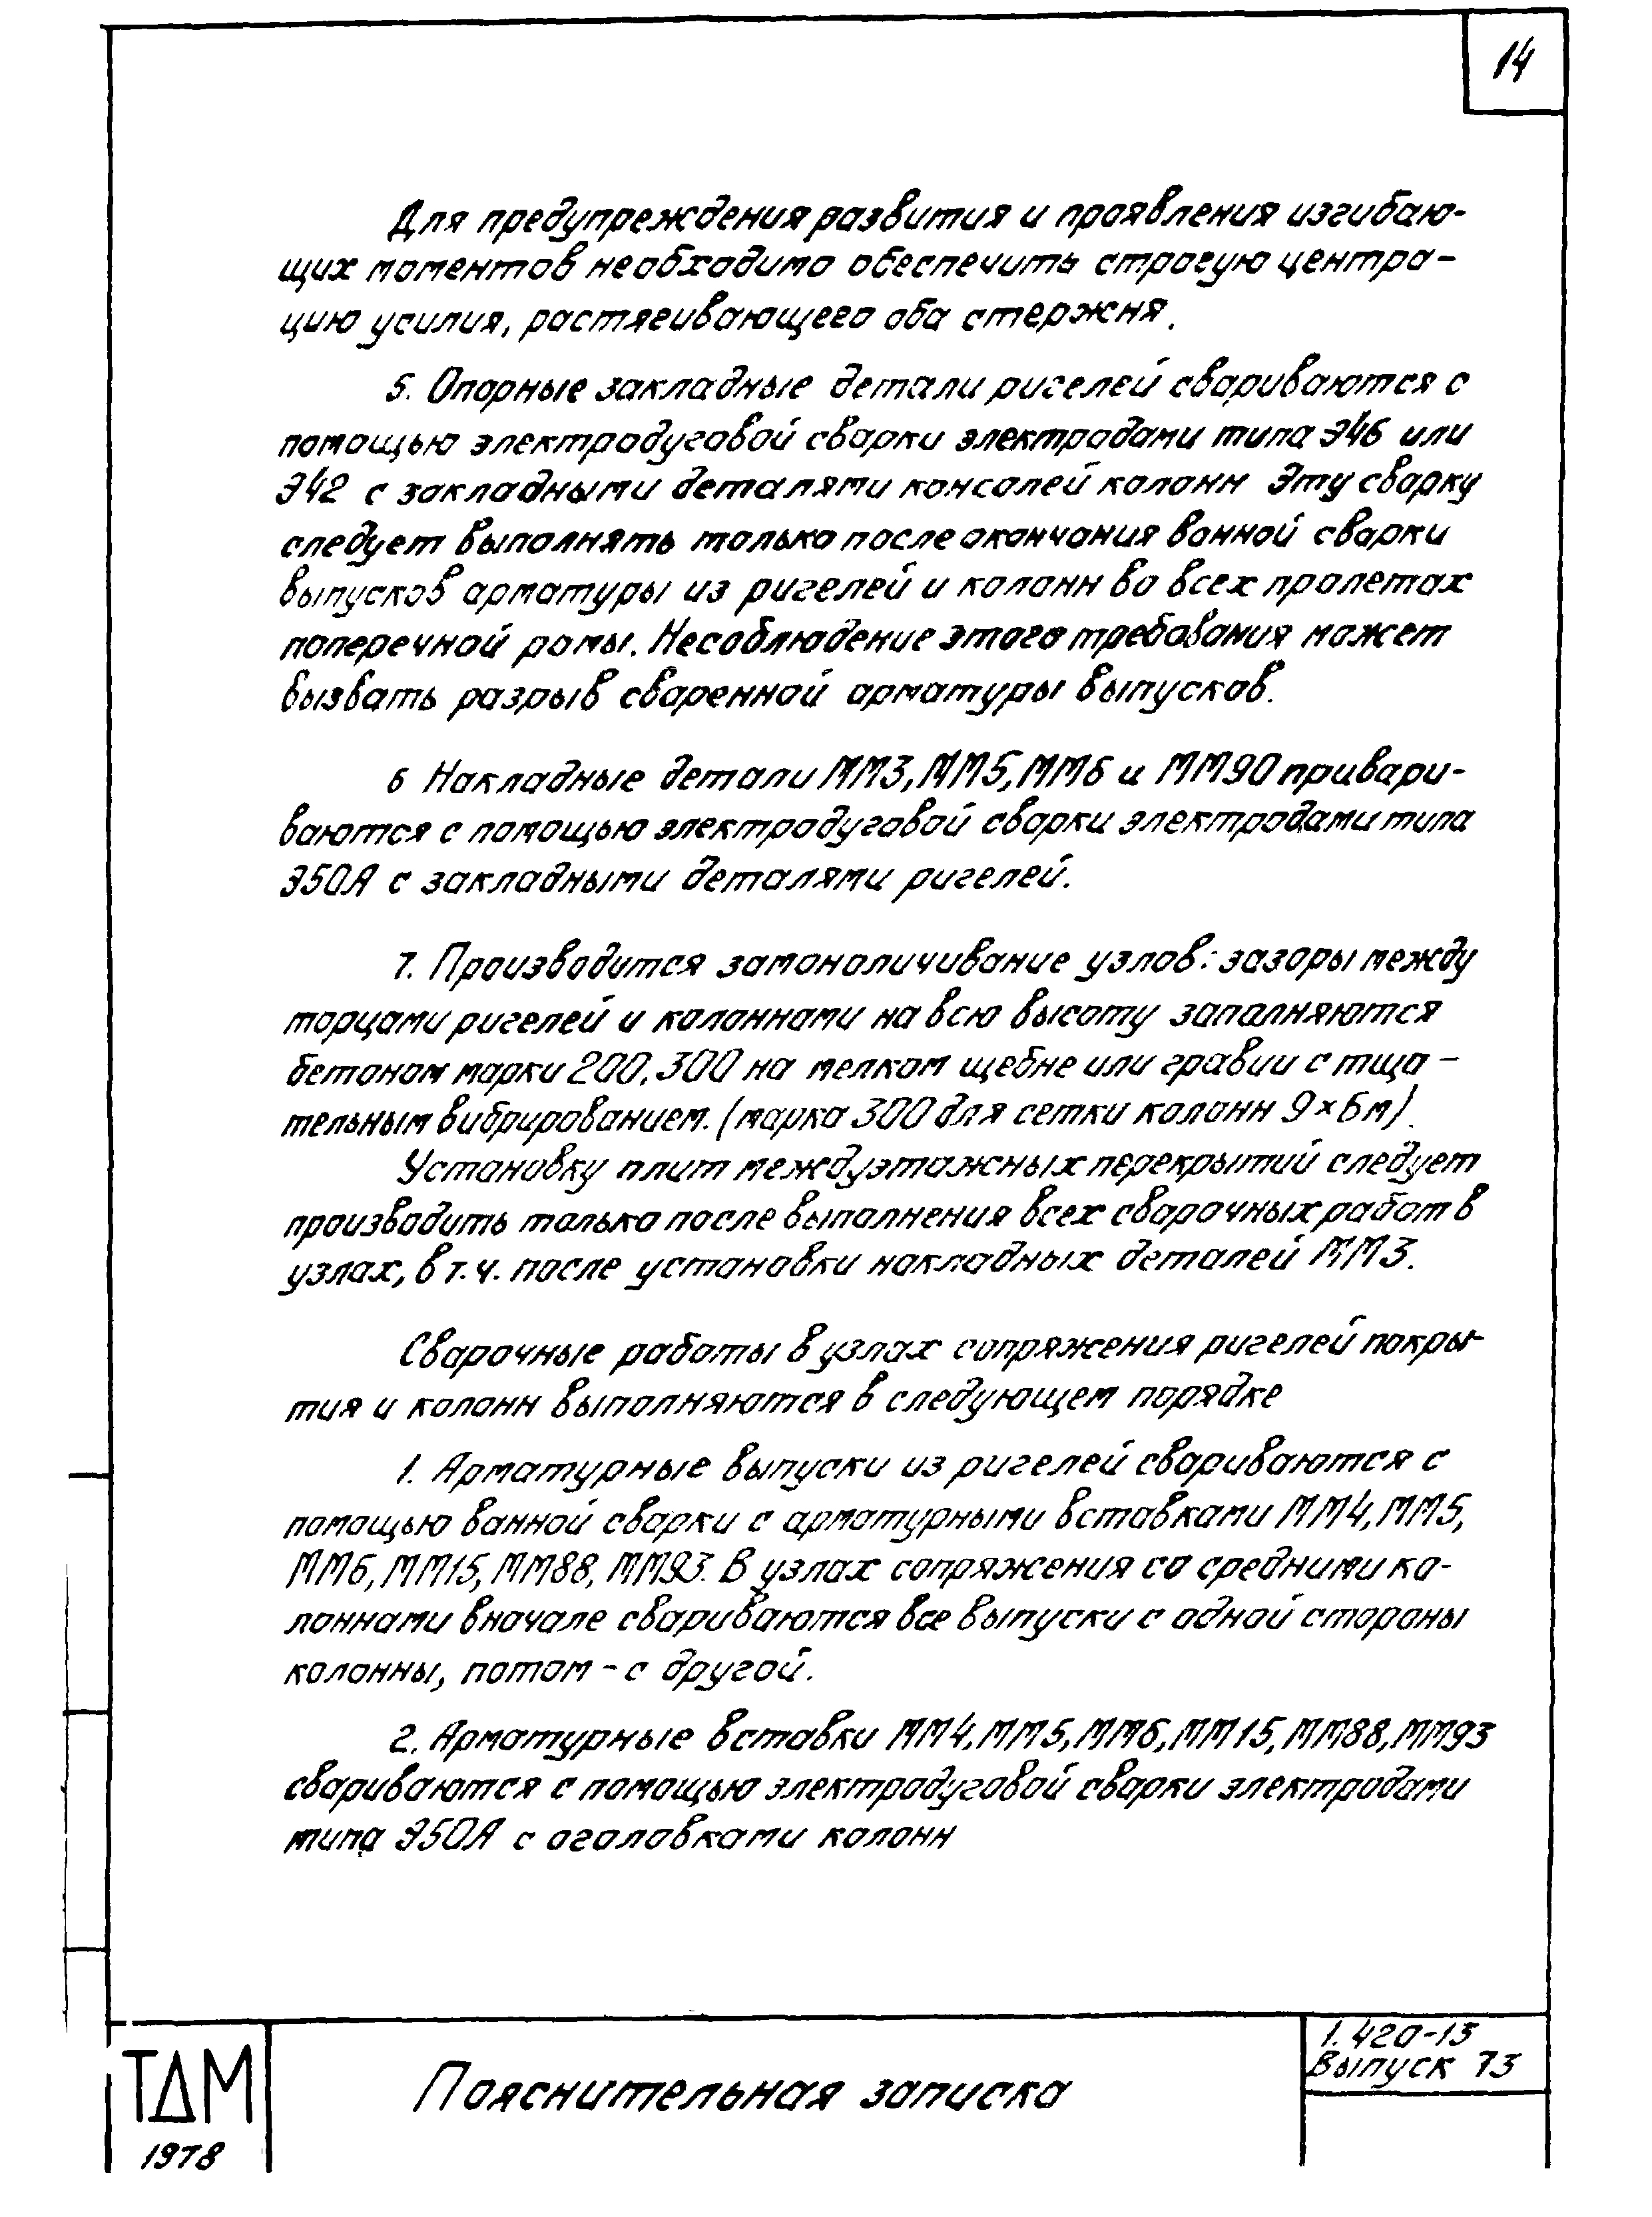 14
Для предупреждения развития и проявления изгибаю-
щих моментов необходимо обеспечить строгую центра-
цию усилия, растягивающего оба стержня.
5. Опорные закладные детали ригелей свариваются с
помощью электродуговой сварки электродами типа Э46 или
Э42 с закладными деталями консолей колонн Эту сварку
следует выполнять только после окончания ванной сварки
выпусков арматуры из ригелей и колонн во всех пролетах
поперечной рамы. Несоблюдение этого требования может
вызвать разрыв сваренной арматуры выпусков.
6 Накладные детали ММ3, ММ5, ММ6 и ММ90 привари-
ваются с помощью электродуговой сварки электродами типа
Э50А с закладными деталями ригелей.
7. Производится замоноличивание узлов: зазоры между
торцами ригелей и колоннами на всю высоту заполняются
бетоном марки 200, 300 на мелком щебне или гравии с тща-
тельным вибрированием. (марка 300 для сетки колонн 9×6м).
Установку плит междуэтажных перекрытий следует
производить только после выполнения всех сварочных работ в
узлах, в т.ч. после установки накладных деталей ММ3.
Сварочные работы в узлах сопряжения ригелей покры-
тия и колонн выполняются в следующем порядке
1. Арматурные выпуски из ригелей свариваются с
помощью ванной сварки с арматурными вставками ММ4, ММ5,
ММ6, ММ15, ММ88, ММ93. В узлах сопряжения со средними ко-
лоннами вначале свариваются все выпуски с одной стороны
колонны, потом - с другой.
2. Арматурные вставки ММ4, ММ5, ММ6, ММ15, ММ88, ММ93
свариваются с помощью электродуговой сварки электродами
типа Э50А с оголовками колонн
ТДМ
1978
Пояснительная записка
1.420-13
Выпуск 73